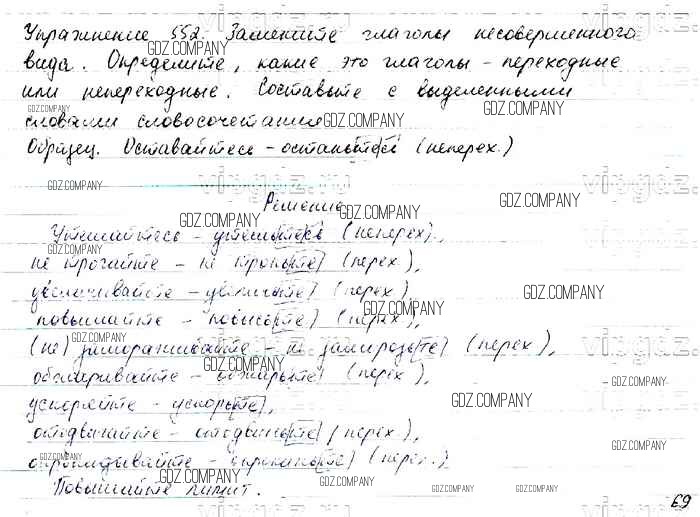 Упражнение 552. Замените глаголы несовершенного
вида. Определите, какие это глаголы - переходные
или непереходные. Составьте с выделенными
словами словосочетания
Образец. Оставайтесь - останьтесь (неперех.)
Решение
Утешайтесь - утешьтесь (неперех).,
не трогайте - не троньте (перех.),
увеличивайте - увеличьте (перех)
повышайте - повысьте (перех),
(не) замораживайте - не заморозьте (перех),
обжаривайте - обжарьте (перех),
ускоряйте - ускорьте,
отодвигайте - отодвиньте (перех.),
опрокидывайте - опрокиньте (перех.)
Повышайте лимит.
69
GDZ.COMPANY
vipgdz